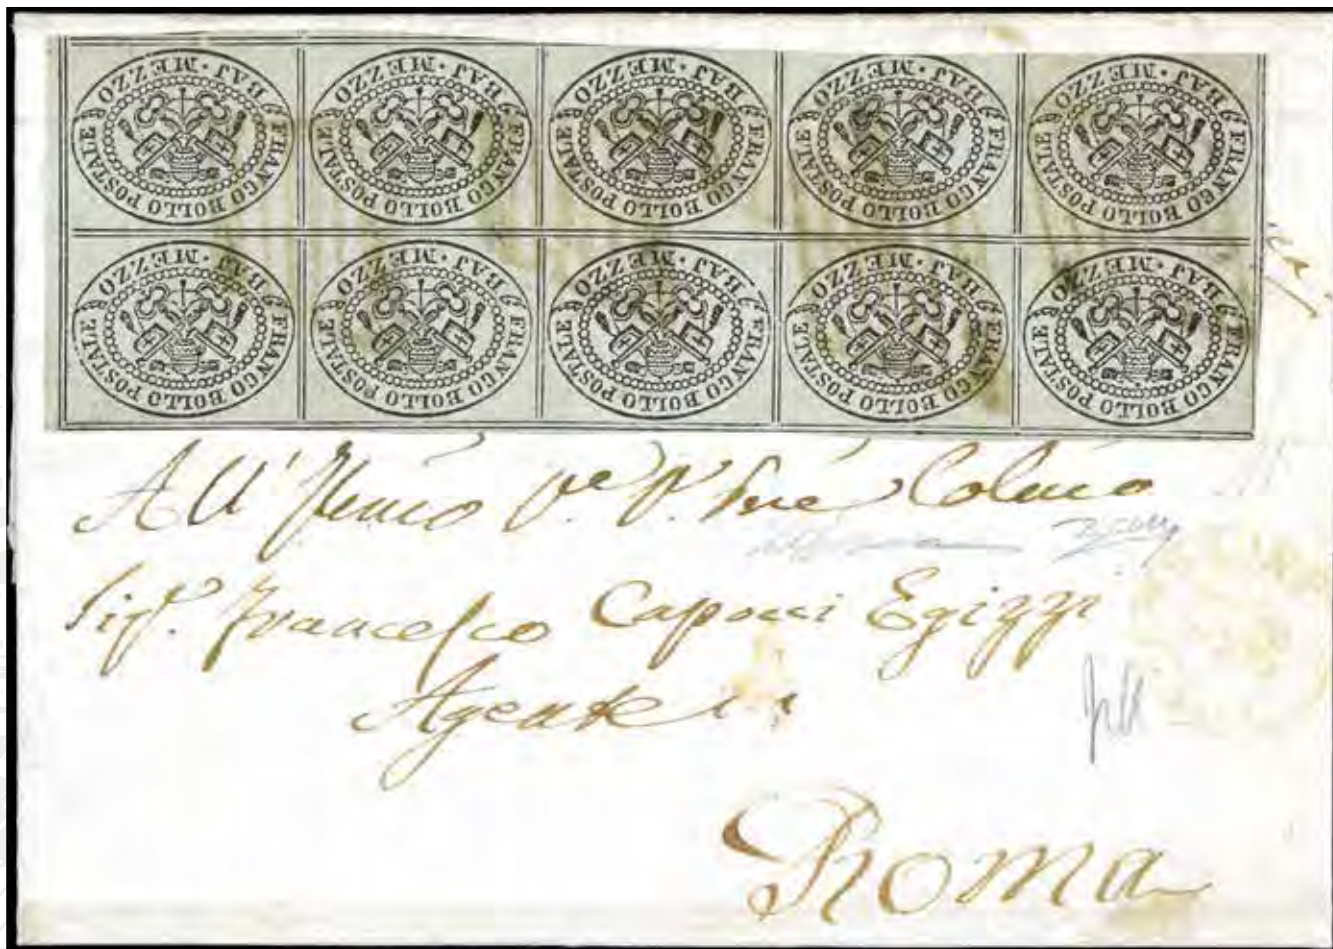 FRANCO BOLLO POSTALE BAJ · MEZZO
FRANCO BOLLO POSTALE BAJ · MEZZO
FRANCO BOLLO POSTALE BAJ · MEZZO
FRANCO BOLLO POSTALE BAJ · MEZZO
FRANCO BOLLO POSTALE BAJ · MEZZO
FRANCO BOLLO POSTALE BAJ · MEZZO
FRANCO BOLLO POSTALE BAJ · MEZZO
FRANCO BOLLO POSTALE BAJ · MEZZO
FRANCO BOLLO POSTALE BAJ · MEZZO
FRANCO BOLLO POSTALE BAJ · MEZZO
All'
Sigr. Francesco Capocci Egizzi
Agente
Roma